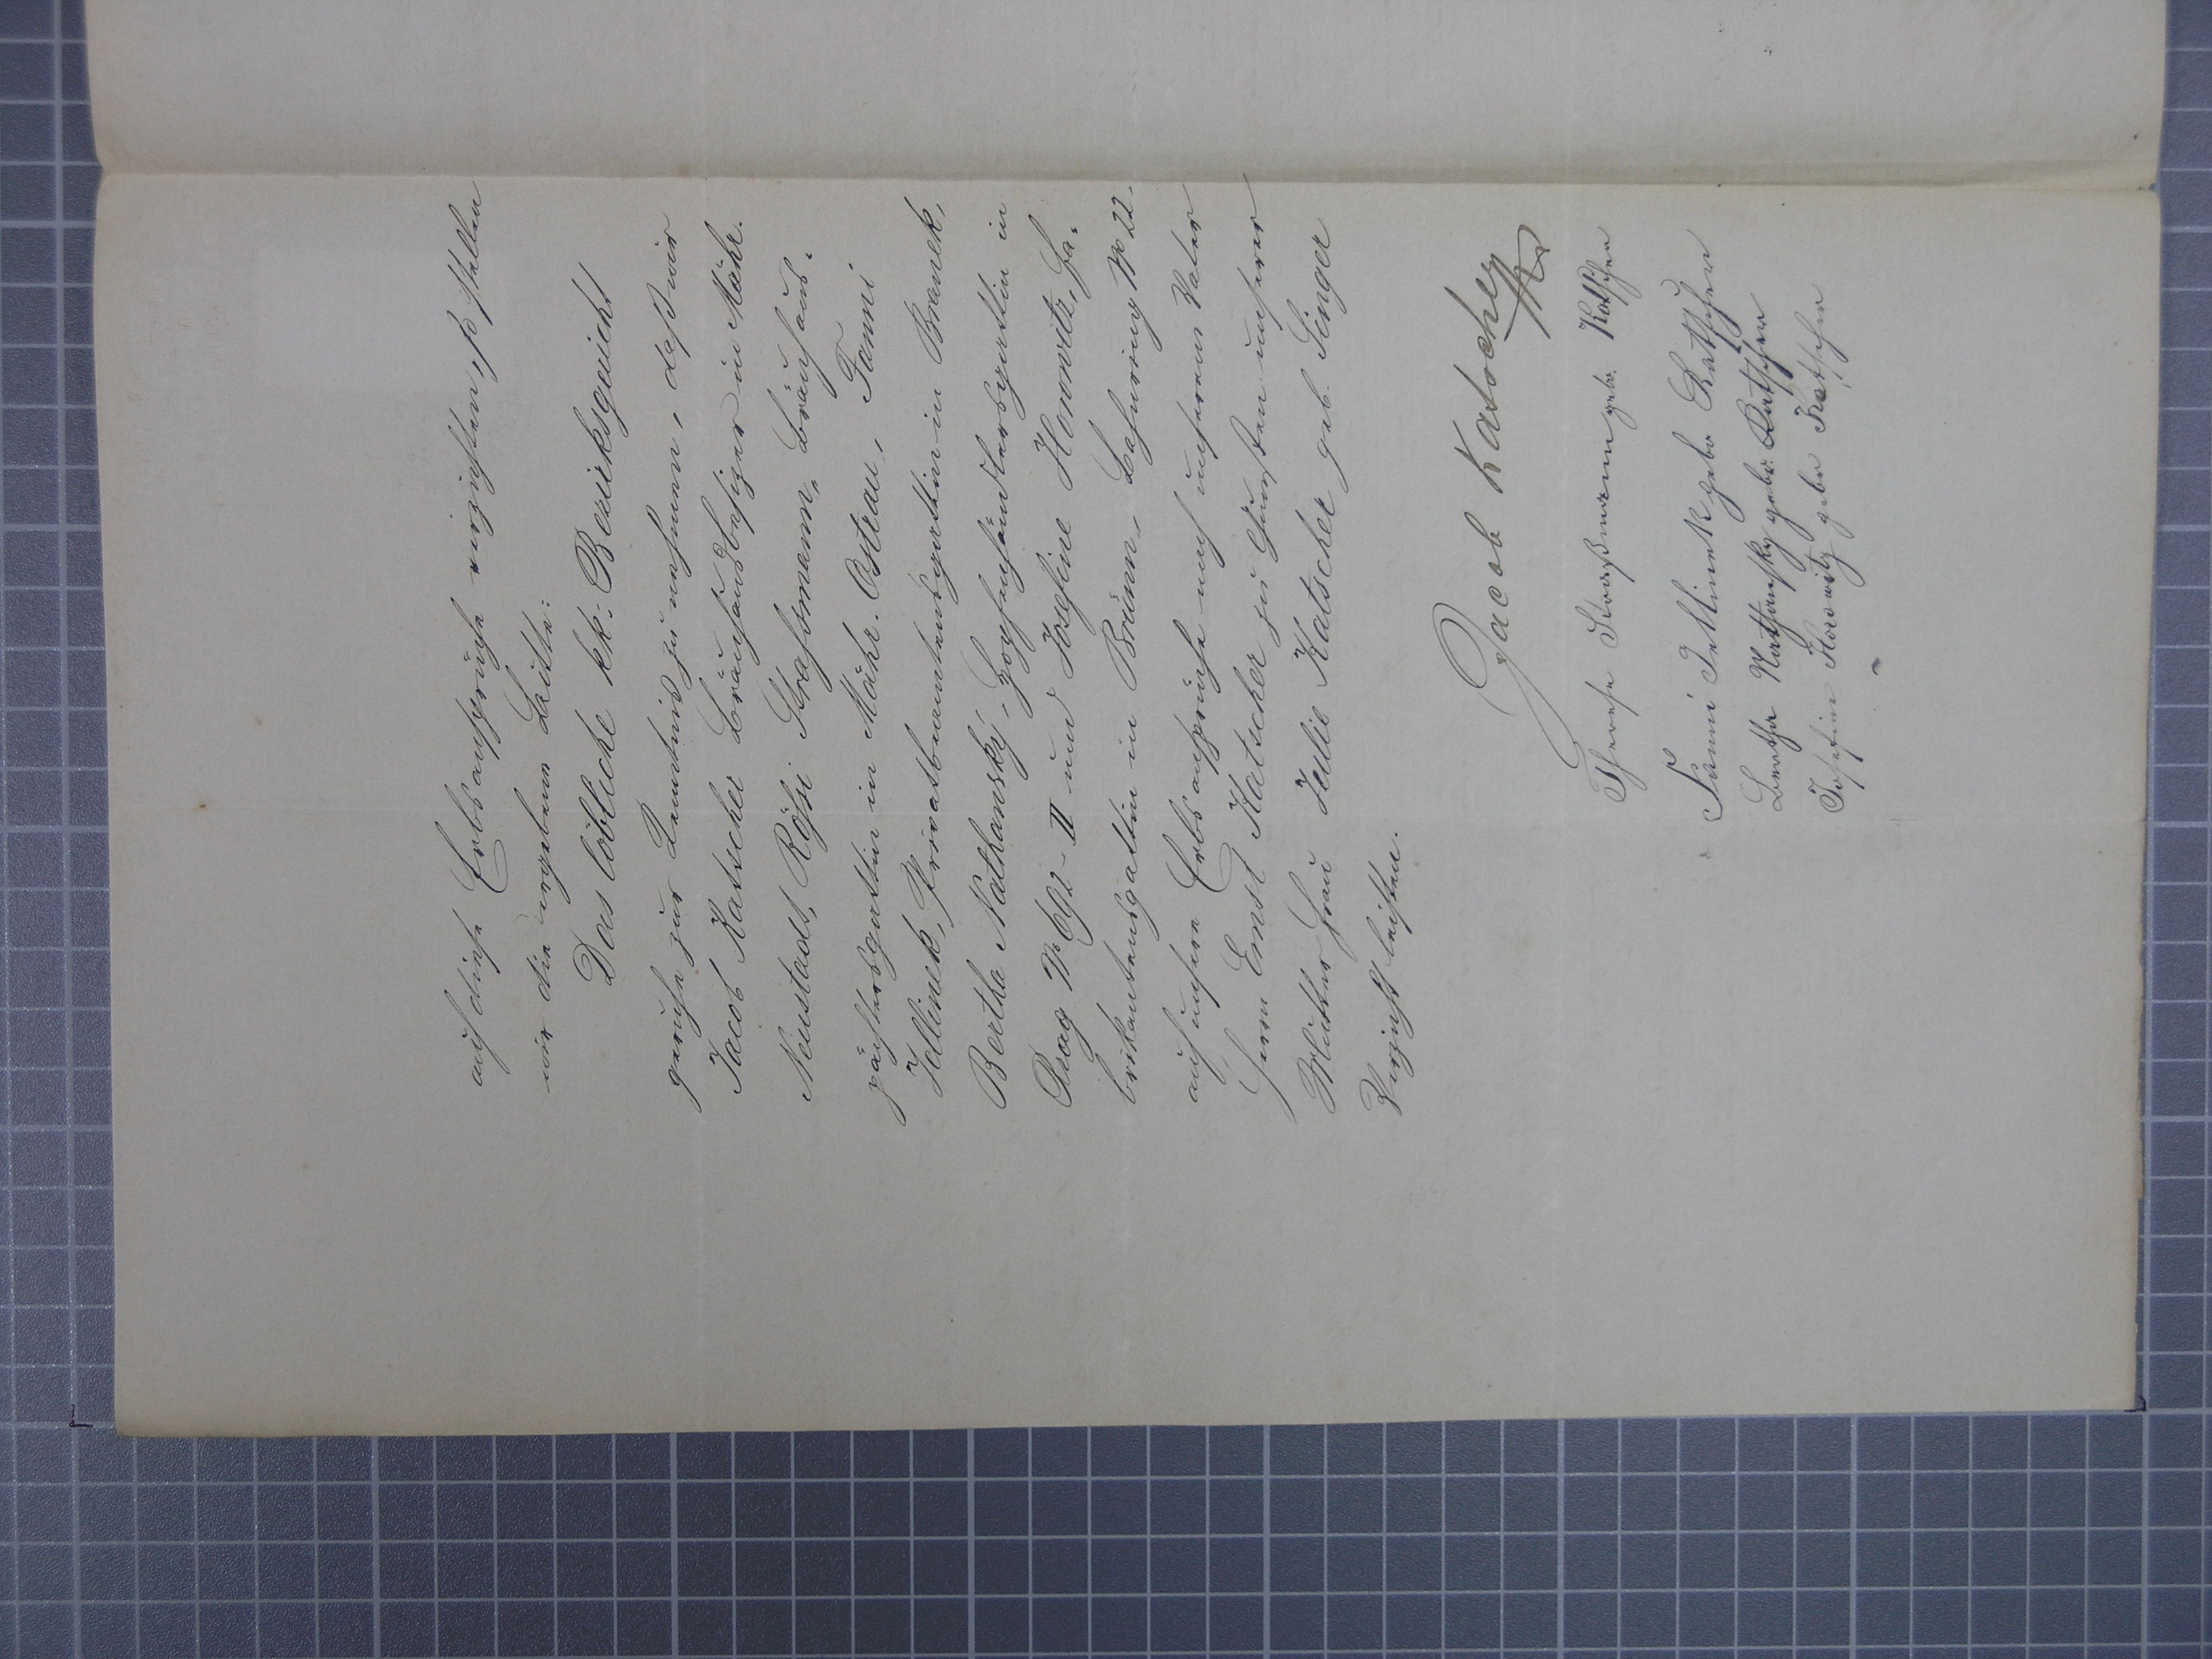 auf diese Erbsansprüche verzichten, so stellen
wir die ergebene Bitte:
Das löbliche kk: Bezirksgericht
geruhe zur Kenntnis zu nehmen, daß wir
Jacob Katscher Bräuhausbesitzer in Mähr.
Neustadt, Rosi Strassmann, Bräuhaus-
pächtersgattin in Mähr. Ostrau, Fanni
Jellinek, Privatbeamtensgattin in Branek,
Bertha Nathansky, Holzhändlersgattin in
Prag No 692-II und Josefine Horowitz, Fa-
brikantensgattin in Brünn, Bahnring No 22.
auf unsere Erbsansprüche nach unserem Vater
Herrn Ernst Katscher zu Gunsten unserer
Mutter Frau Julie Katscher geb. Singer
Verzicht leisten.
Jacob Katscher
Therese Straßmann geb. Katscher
Fanni Jellinek geb. Katscher
Bertha Nathansky geb. Katscher
Josefine Horowitz geb. Katscher